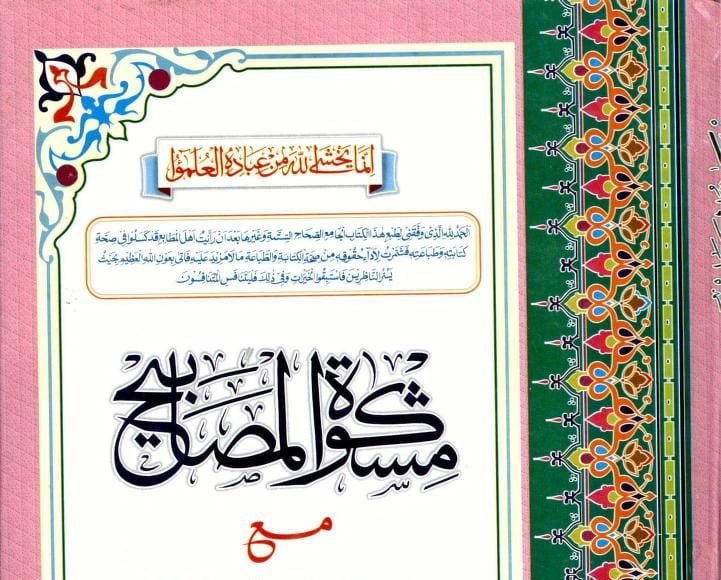 إنما يخشى الله من عباده العلمؤا
الحمد لله الذی وفقنی لطبع هذا الکتاب الجامع الصحاح الستة وغیرها بعد ان رأیت اهل المطابع قد کسلوا فی صحة
کتابته وطباعته فشمرت لاداء حقوقه من صحة الکتابة والطباعة ما لا مزید علیه فاتی بعون الله العظیم بحیث
یسر الناظرین فاستبقوا الخیرات وفی ذلك فلیتنافس المتنافسون
مشكوة المصابيح
مع